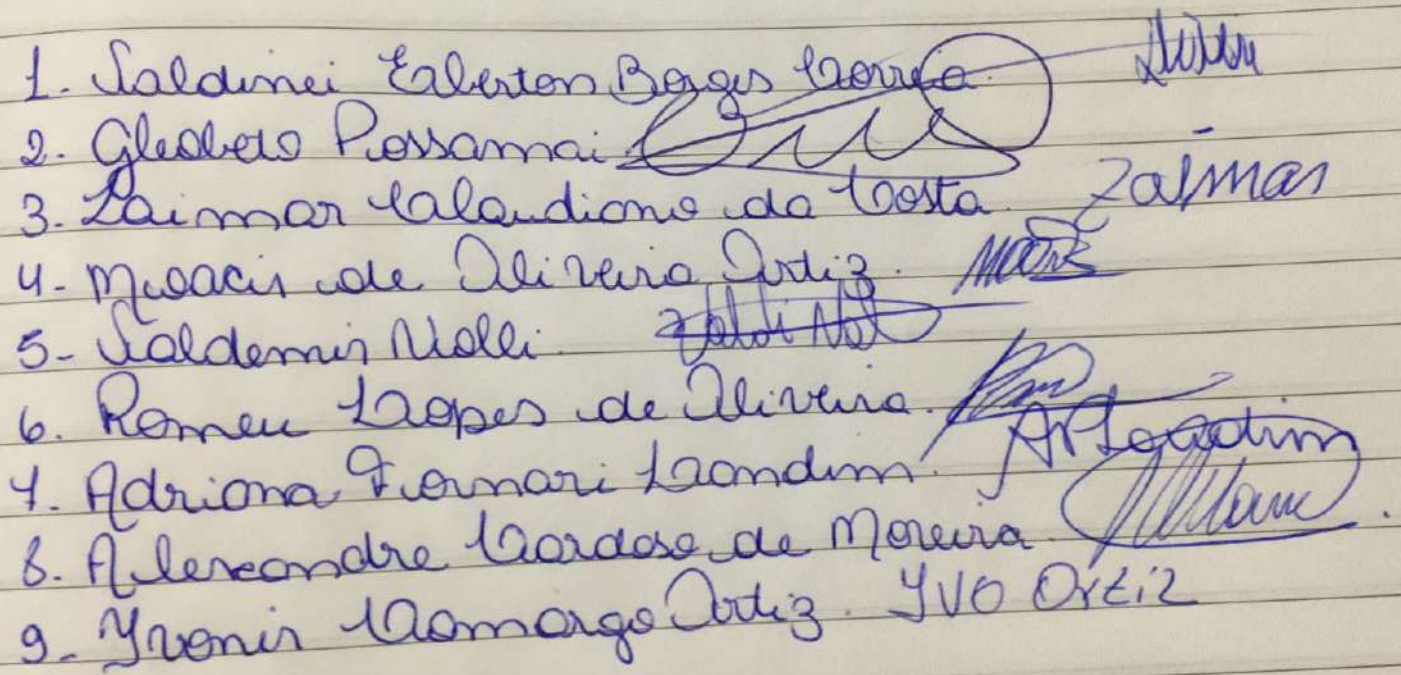 1. Valdinei Ederton Borges Correa
2. Gleoberto Possamai
3. Zaimar Claudiano da Costa. Zaimar
4- Moacir de Oliveira Ortiz.
5- Valdemir Nolli. Valdi Nol
6. Romeu Lopes de Oliveira.
7. Adriana Fornari Landim.
8. Alexandre Cardoso de Moreira
9- Yvonir Camargo Ortiz. YVO Ortiz